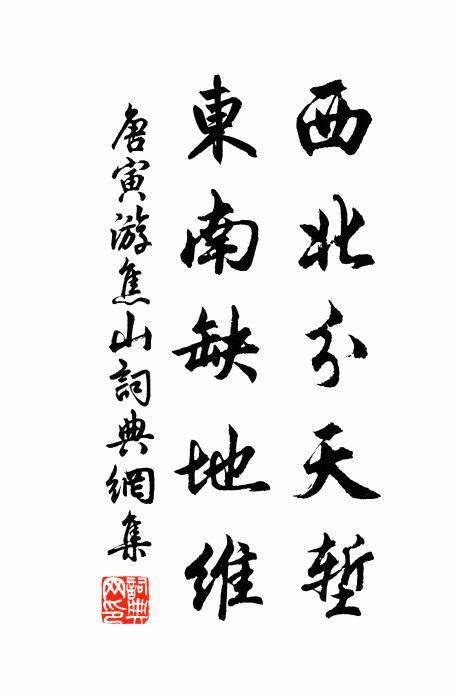 西北分天堑
東南缺地維
唐寅游焦山詞典網集
詞典網印